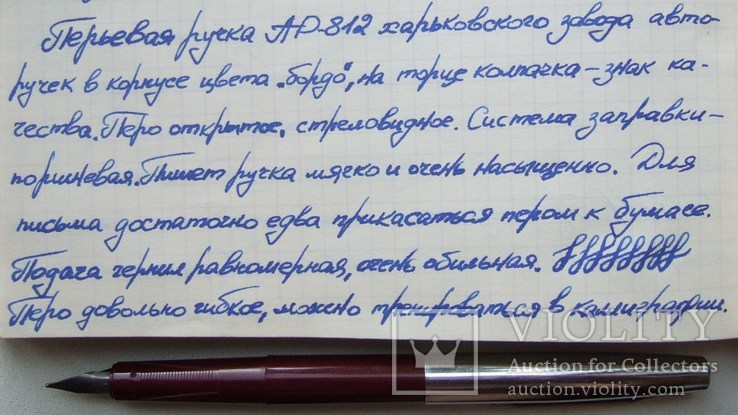 Перьевая ручка АР-812 харьковского завода авто-
ручек в корпусе цвета „бордо", на торце колпачка – знак ка-
чества. Перо открытое, стреловидное. Система заправки –
поршневая. Пишет ручка мягко и очень насыщенно. Для
письма достаточно едва прикасаться пером к бумаге.
Подача чернил равномерная, очень обильная.
Перо довольно гибкое, можно тренироваться в каллиграфии.
VIOLITY
Auction for Collectors
auction.violity.com